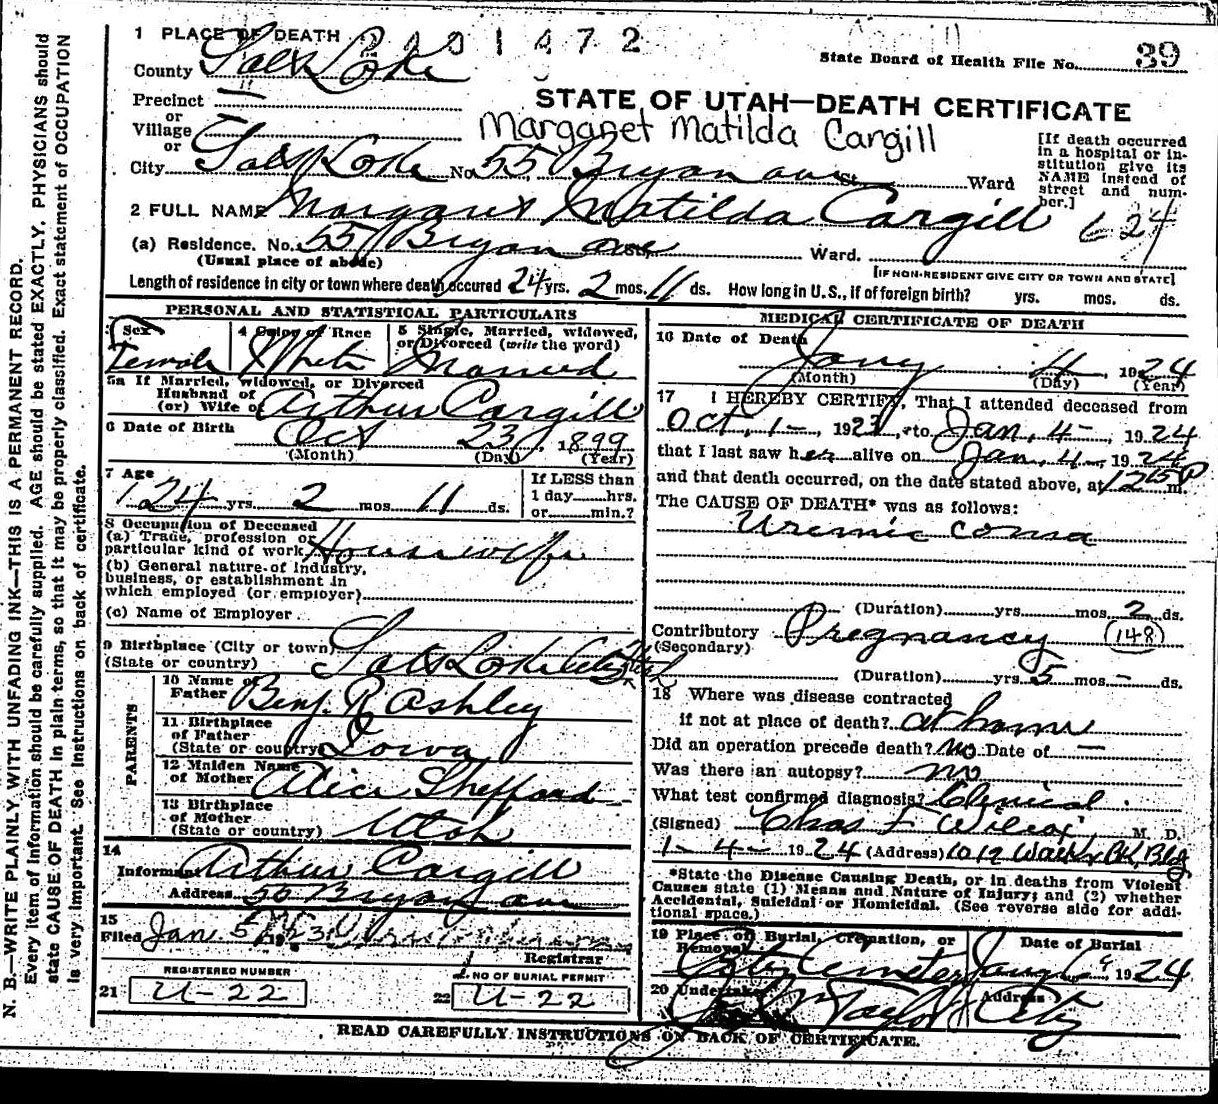 N. B.—WRITE PLAINLY WITH UNFADING INK—THIS IS A PERMANENT RECORD.
Every item of Information should be carefully supplied. AGE should be stated EXACTLY. PHYSICIANS should
state CAUSE OF DEATH in plain terms, so that it may be properly classified. Exact statement of OCCUPATION
is very important. See Instructions on back of certificate.
1 PLACE OF DEATH 1472
State Board of Health File No. 39
County Salt Lake
Precinct
or
Village
or
STATE OF UTAH—DEATH CERTIFICATE
Margaret Matilda Cargill
[If death occurred
in a hospital or in-
stitution give its
NAME instead of
street and num-
ber.]
City Salt Lake No. 55 Bryan ave St. Ward
2 FULL NAME Margaret Matilda Cargill 624
(a) Residence. No. 55 Bryan ave St. Ward.
(Usual place of abode)
[IF NON-RESIDENT GIVE CITY OR TOWN AND STATE]
Length of residence in city or town where death occured 24 yrs. 2 mos. 11 ds. How long in U.S., if of foreign birth? yrs. mos. ds.
PERSONAL AND STATISTICAL PARTICULARS
3 Sex 4 Color of Race 5 Single, Married, widowed,
or Divorced (write the word)
Female White Married
5a If Married, widowed, or Divorced
Husband of
(or) Wife of Arthur Cargill
6 Date of Birth Oct 23, 1899
(Month) (Day) (Year)
7 Age
24 yrs 2 mos 11 ds.
If LESS than
1 day hrs.
or min.?
8 Occupation of Deceased
(a) Trade, profession or
particular kind of work Housewife
(b) General nature of Industry,
business, or establishment in
which employed (or employer)
(c) Name of Employer
9 Birthplace (City or town)
(State or country) Salt Lake City Utah
PARENTS
10 Name of
Father Benj. R Ashley
11 Birthplace
of Father
(State or country) Iowa
12 Maiden Name
of Mother Alice Shefford
13 Birthplace
of Mother
(State or country) Utah
14
Informant Arthur Cargill
Address 55 Bryan ave
15
Filed Jan. 5
Registrar
REGISTERED NUMBER
21 U-22
NO OF BURIAL PERMIT
22 U-22
MEDICAL CERTIFICATE OF DEATH
16 Date of Death
Jany 4, 1924
(Month) (Day) (Year)
17 I HEREBY CERTIFY, That I attended deceased from
Oct. 1-, 1923, to Jan. 4-, 1924
that I last saw her alive on Jan. 4-, 1924
and that death occurred, on the date stated above, at 1215P m.
The CAUSE OF DEATH* was as follows:
Uremic coma
(Duration) yrs. mos. 2 ds.
Contributory Pregnancy (148)
(Secondary)
(Duration) yrs 5 mos - ds.
18 Where was disease contracted
if not at place of death? at home
Did an operation precede death? no Date of —
Was there an autopsy? no
What test confirmed diagnosis? Clinical.
(Signed) Chas F Wilcox, M. D.
1-4- 1924 (Address) 1019 Walker BK. Bldg
*State the Disease Causing Death, or in deaths from Violent
Causes state (1) Means and Nature of Injury; and (2) whether
Accidental, Suicidal or Homicidal. (See reverse side for addi-
tional space.)
19 Place of Burial, Cremation, or
Removal
Date of Burial
City Cemetery Jany 1924
20 Undertaker Address
Taylor City
READ CAREFULLY INSTRUCTIONS ON BACK OF CERTIFICATE.